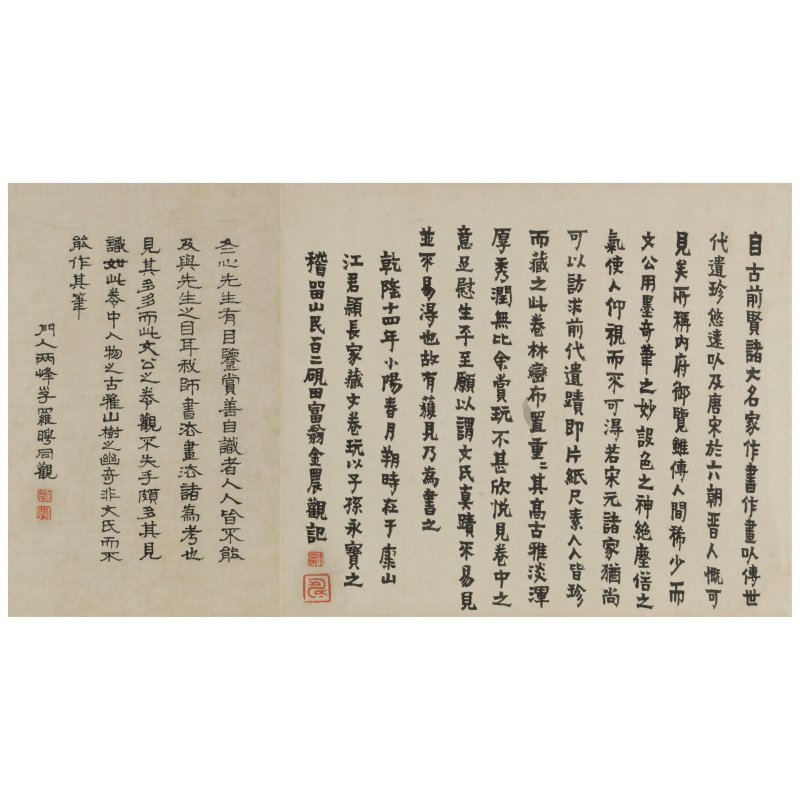 自古前賢諸大名家作書作畫以傳世
代遺珍悠遠以及唐宋於六朝晋人慨可
見矣所稱內府御覽雖傳人間稀少而
文公用墨奇筆之妙設色之神絶塵俗之
氣使人仰視而不可得若宋元諸家猶尚
可以訪求前代遺蹟即片紙尺素人人皆珍
而藏之此卷林巒布置重〻其高古雅淡渾
厚秀潤無比余賞玩不甚欣悅見卷中之
意足慰生平至願以謂文氏真蹟不易見
並不易得也故有獲見乃為書之
乾隆十四年小陽春月朔時在于
江君穎長家藏文卷玩以子孫永寶之
稽留山民百二硯田富翁金農觀記
冬心先生有目鑒賞善自識者人人皆不能
及與先生之目耳秋師書法畫法諸為考也
見其多多而此文公之卷觀不失手頗多其見
識如此卷中人物之古雅山樹之幽奇非文氏而不
能作其筆
門人兩峰學羅聘同觀